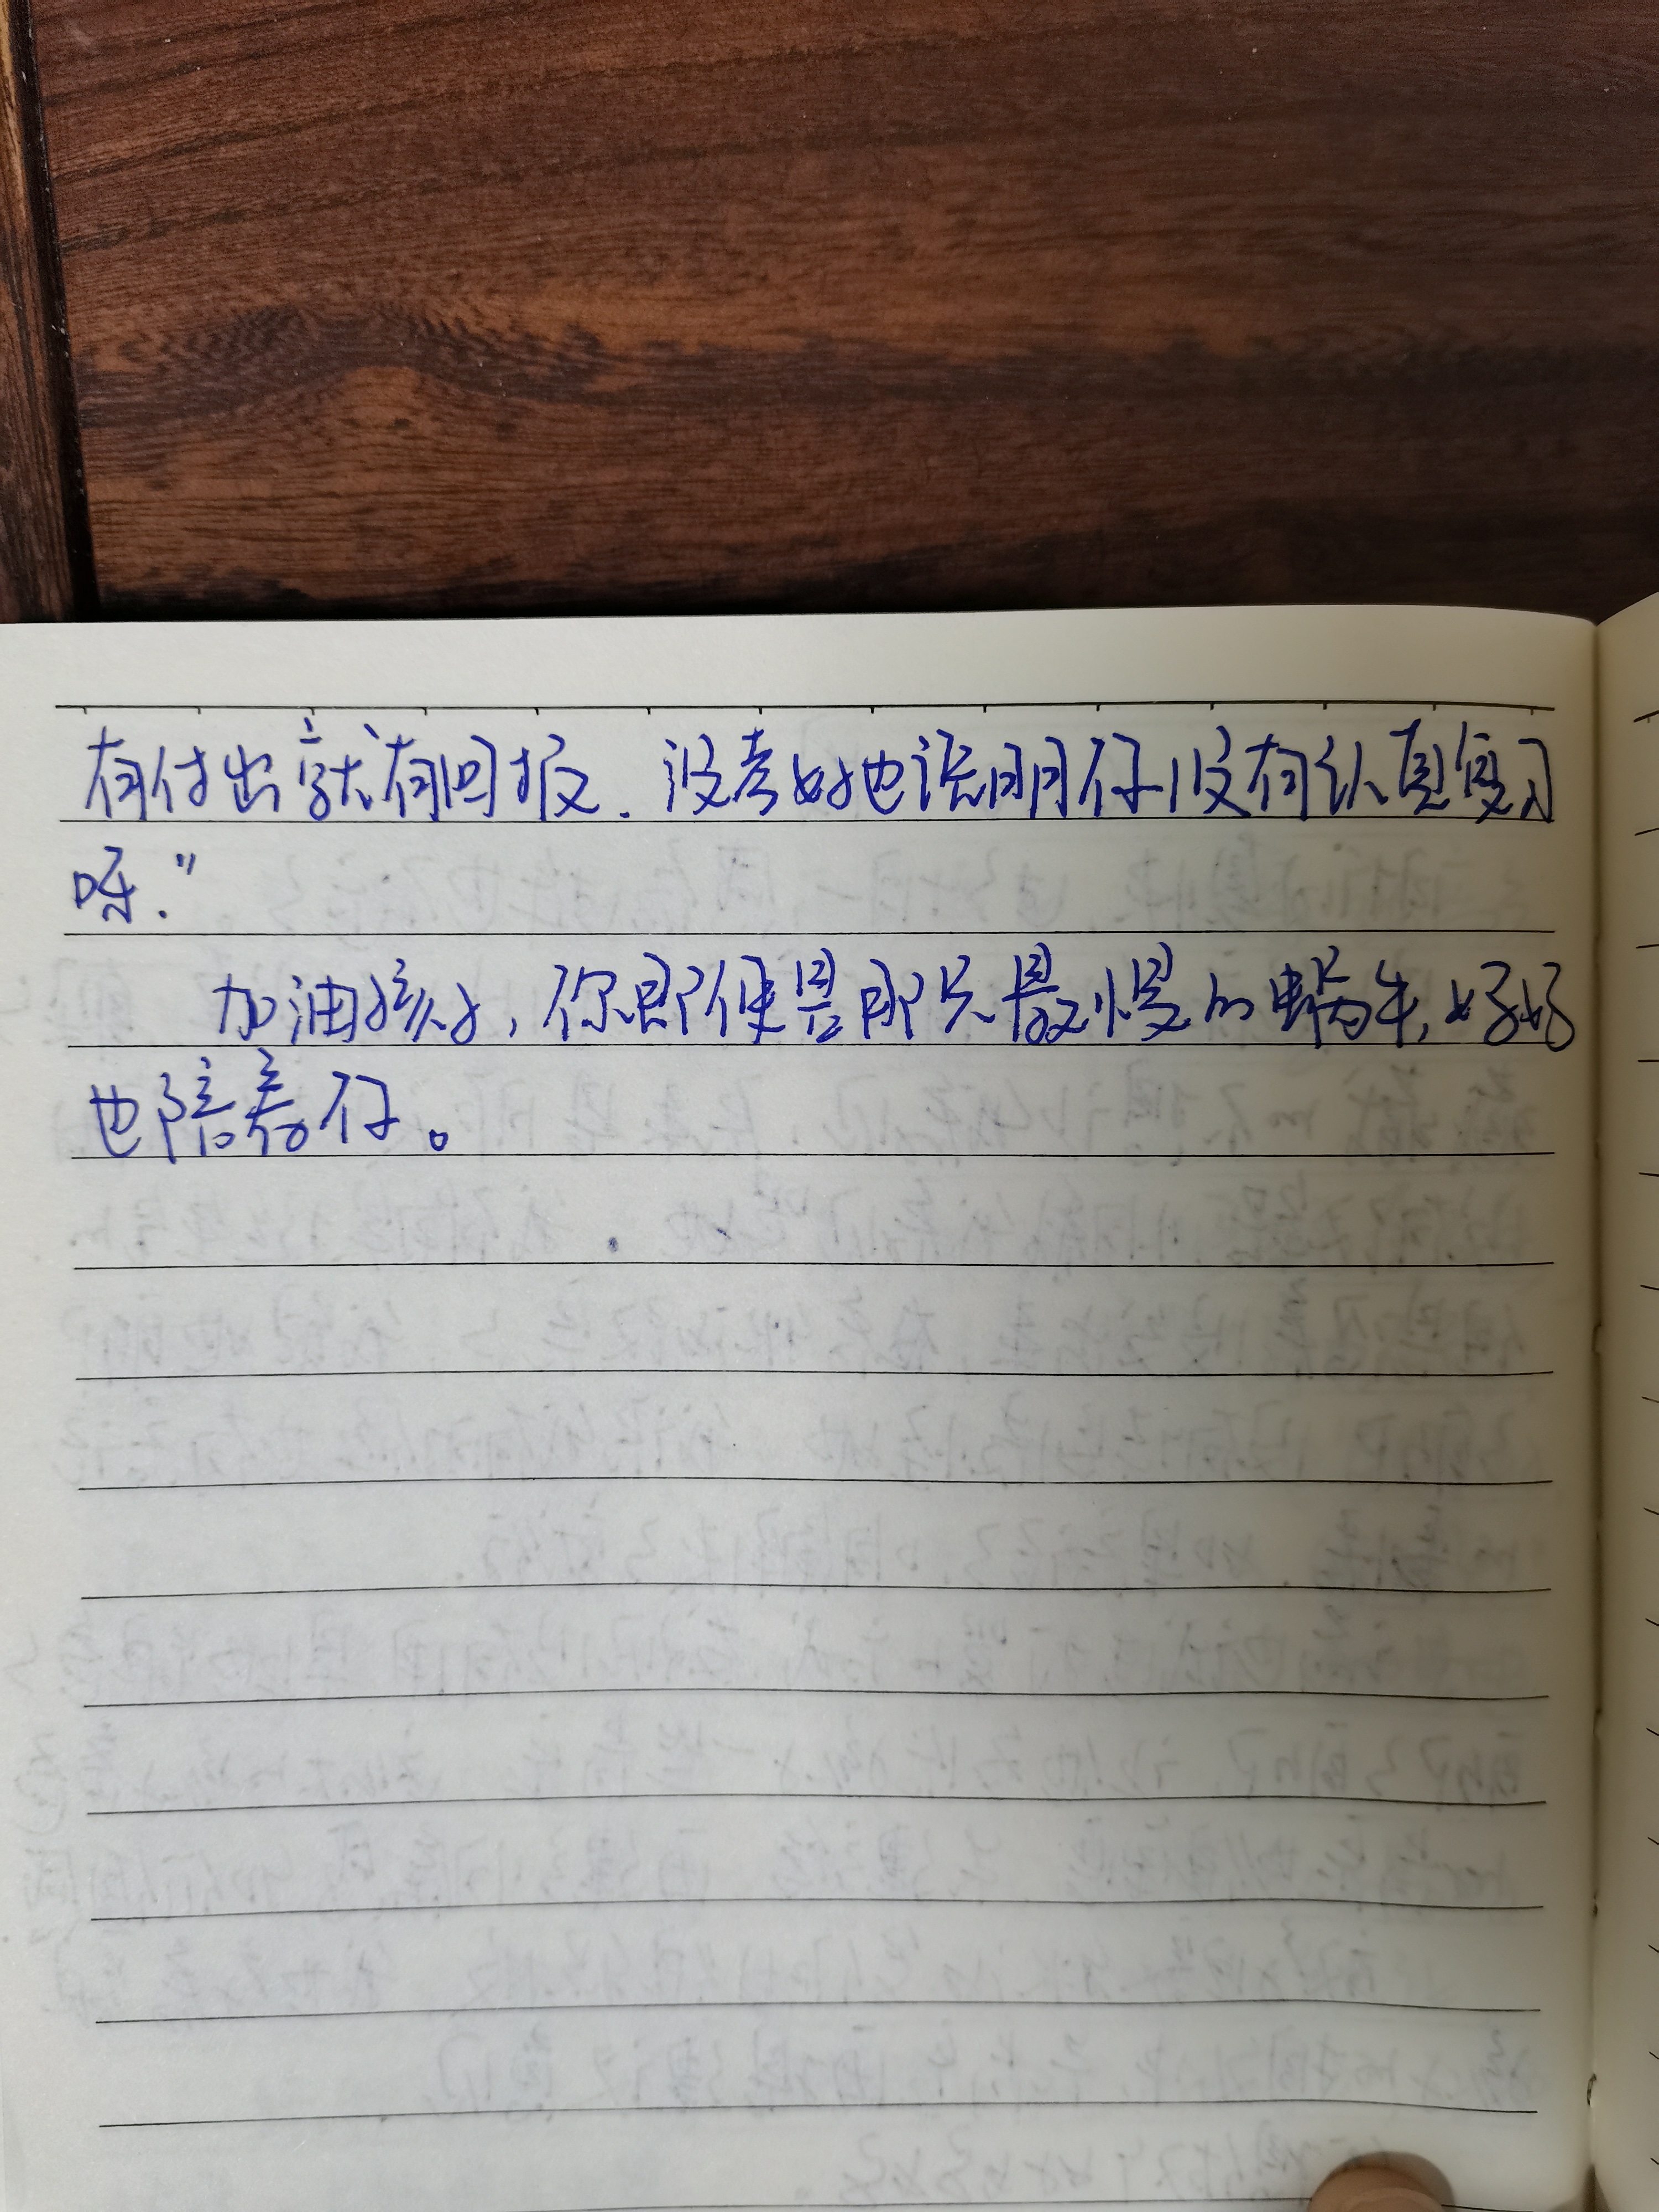 有付出就有回报.没考好也说明你没有认真复习
呀."
加油孩好,你即使是那只最慢的蜗牛,好好
也陪着你。